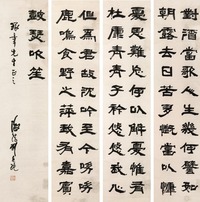 對酒當歌人生幾何譬如
朝露去日苦多慨當以慷
憂思難忘何以解憂惟有
杜康青青子衿悠悠我心
但為君故沈吟至今呦呦
鹿鳴食野之苹我有嘉賓
鼓瑟吹笙
先生正之